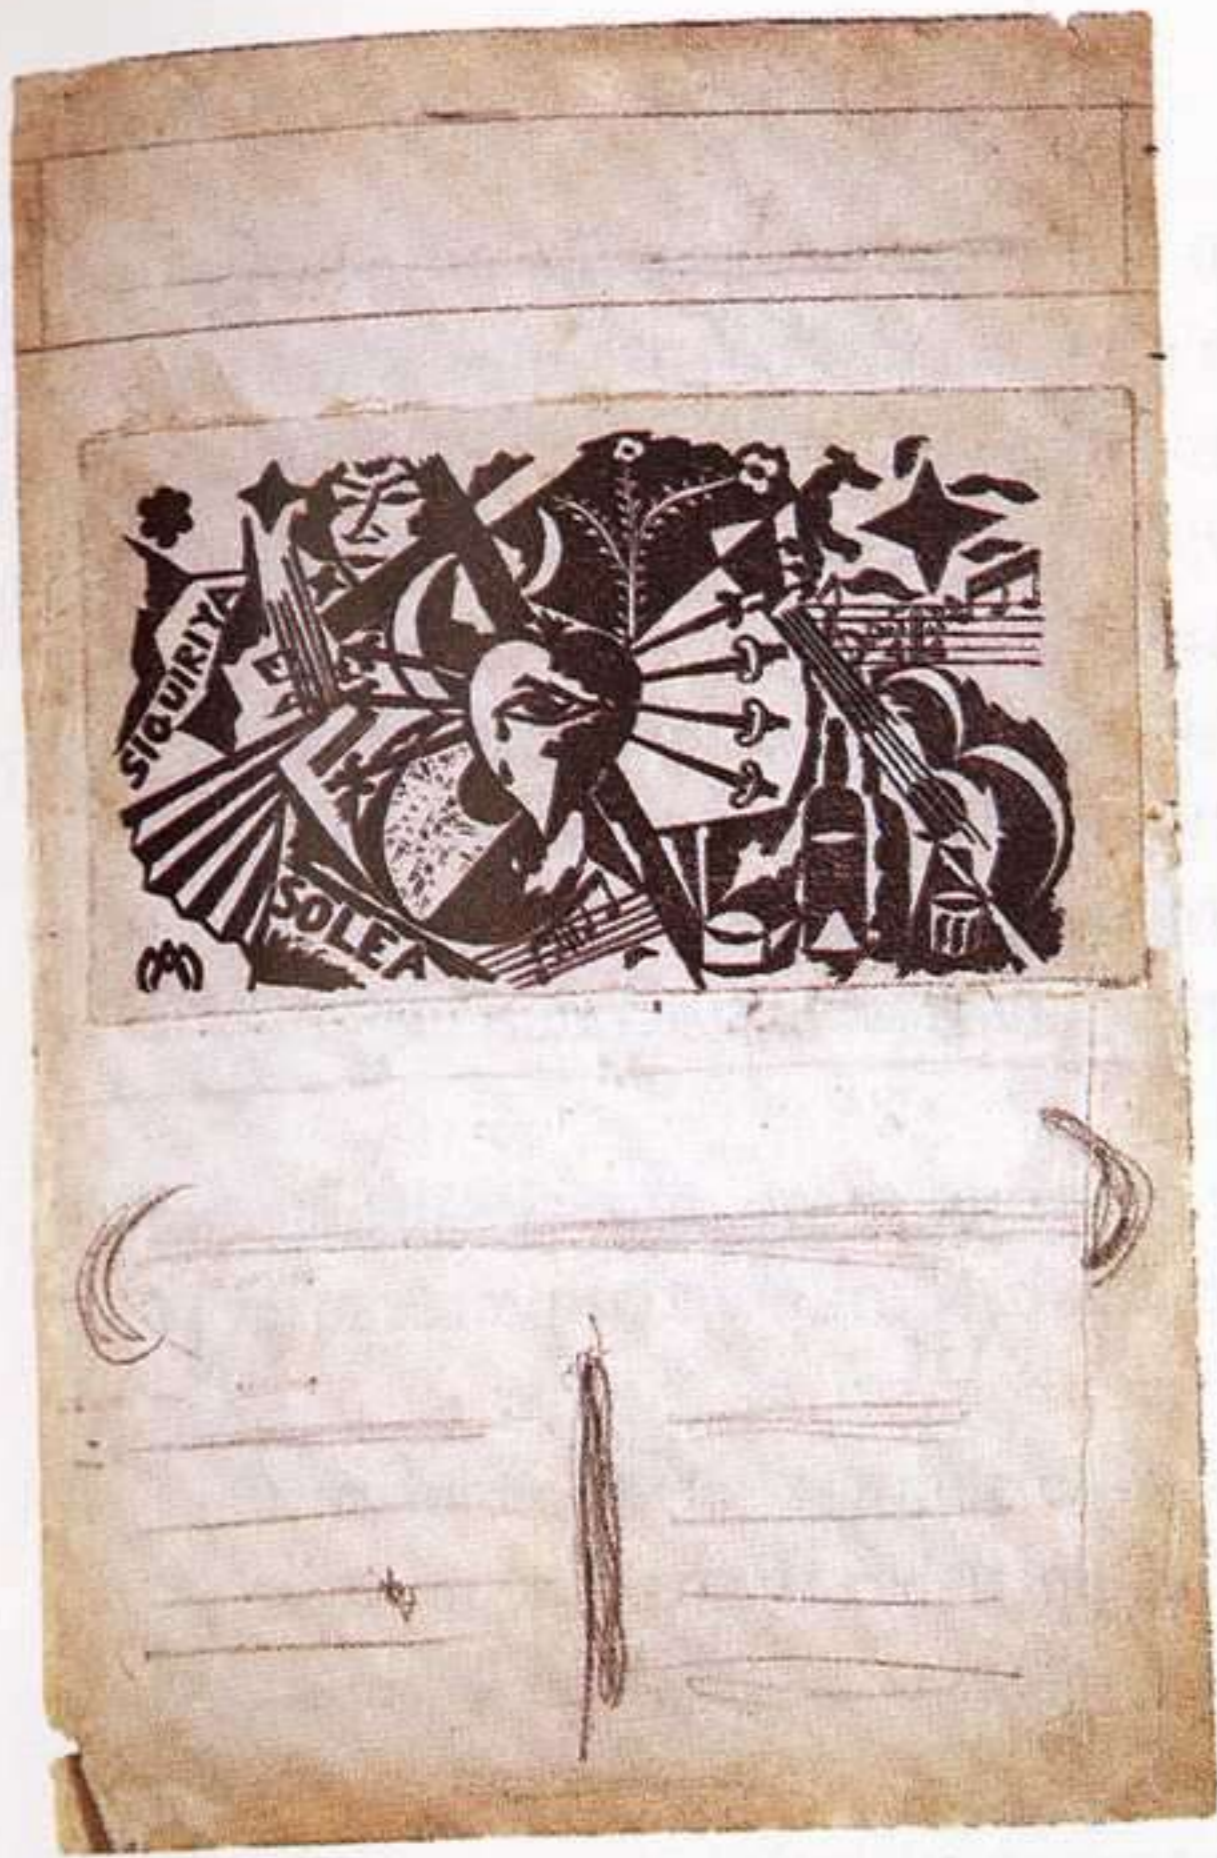 SIGUIRIYA
SOLEA